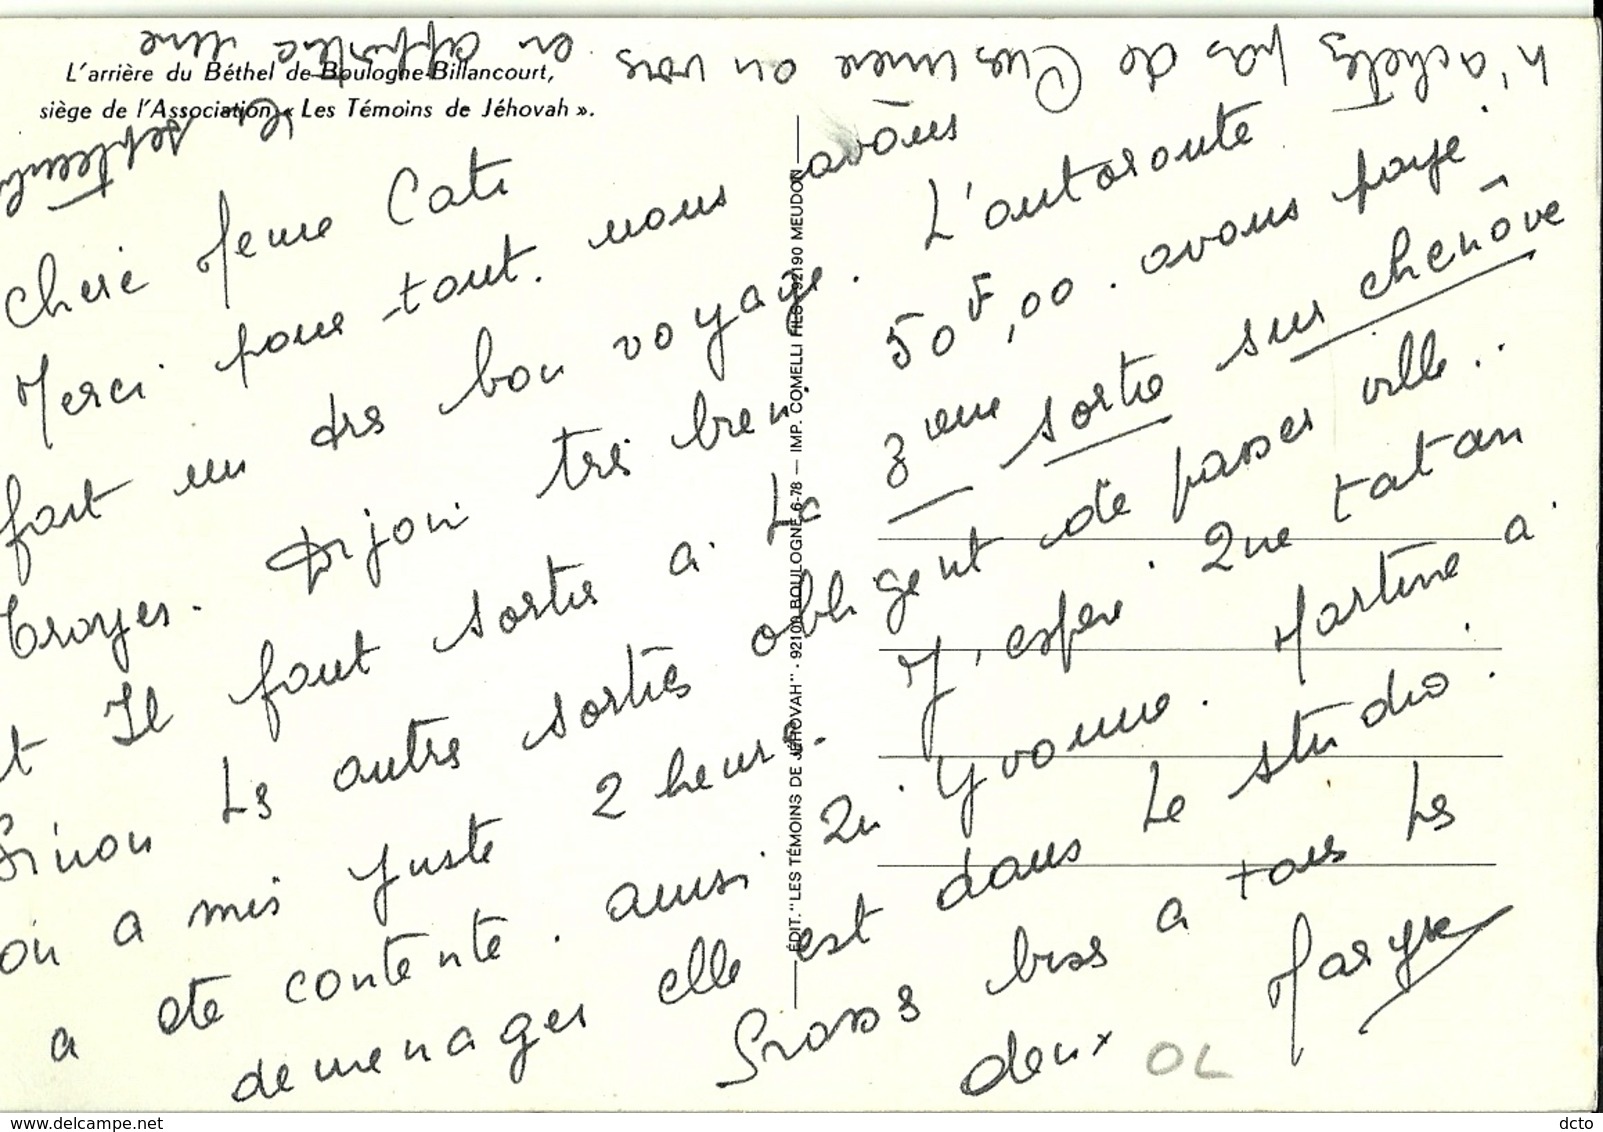 L'arrière du Béthel de Boulogne-Billancourt,
siège de l'Association « Les Témoins de Jéhovah ».
Cherie Meme Cati
Merci pour tout. nous avons
fait un drs bon voyage. L'autoroute
Troyes. Dijon tres bien. 50F,00. avons payé
et Il faut sortir a La 3eme sortie sur chenôve
Sinon Ls autre sorties obligent de passer ville..
on a mis juste 2 heures. J'espere. Que tatan
a ete contente. ainsi Qu'Yvonne. Martine a
demenager elle est dans Le studio.
Grosss biss a tous Ls
deux Maryse
OL
n'achetez pas de on vous en apportera une
en septembre
ÉDIT. "LES TÉMOINS DE JÉHOVAH" - 92100 BOULOGNE 6-78 — IMP. COMELLI FILS 92190 MEUDON
delcampe.net
dcto